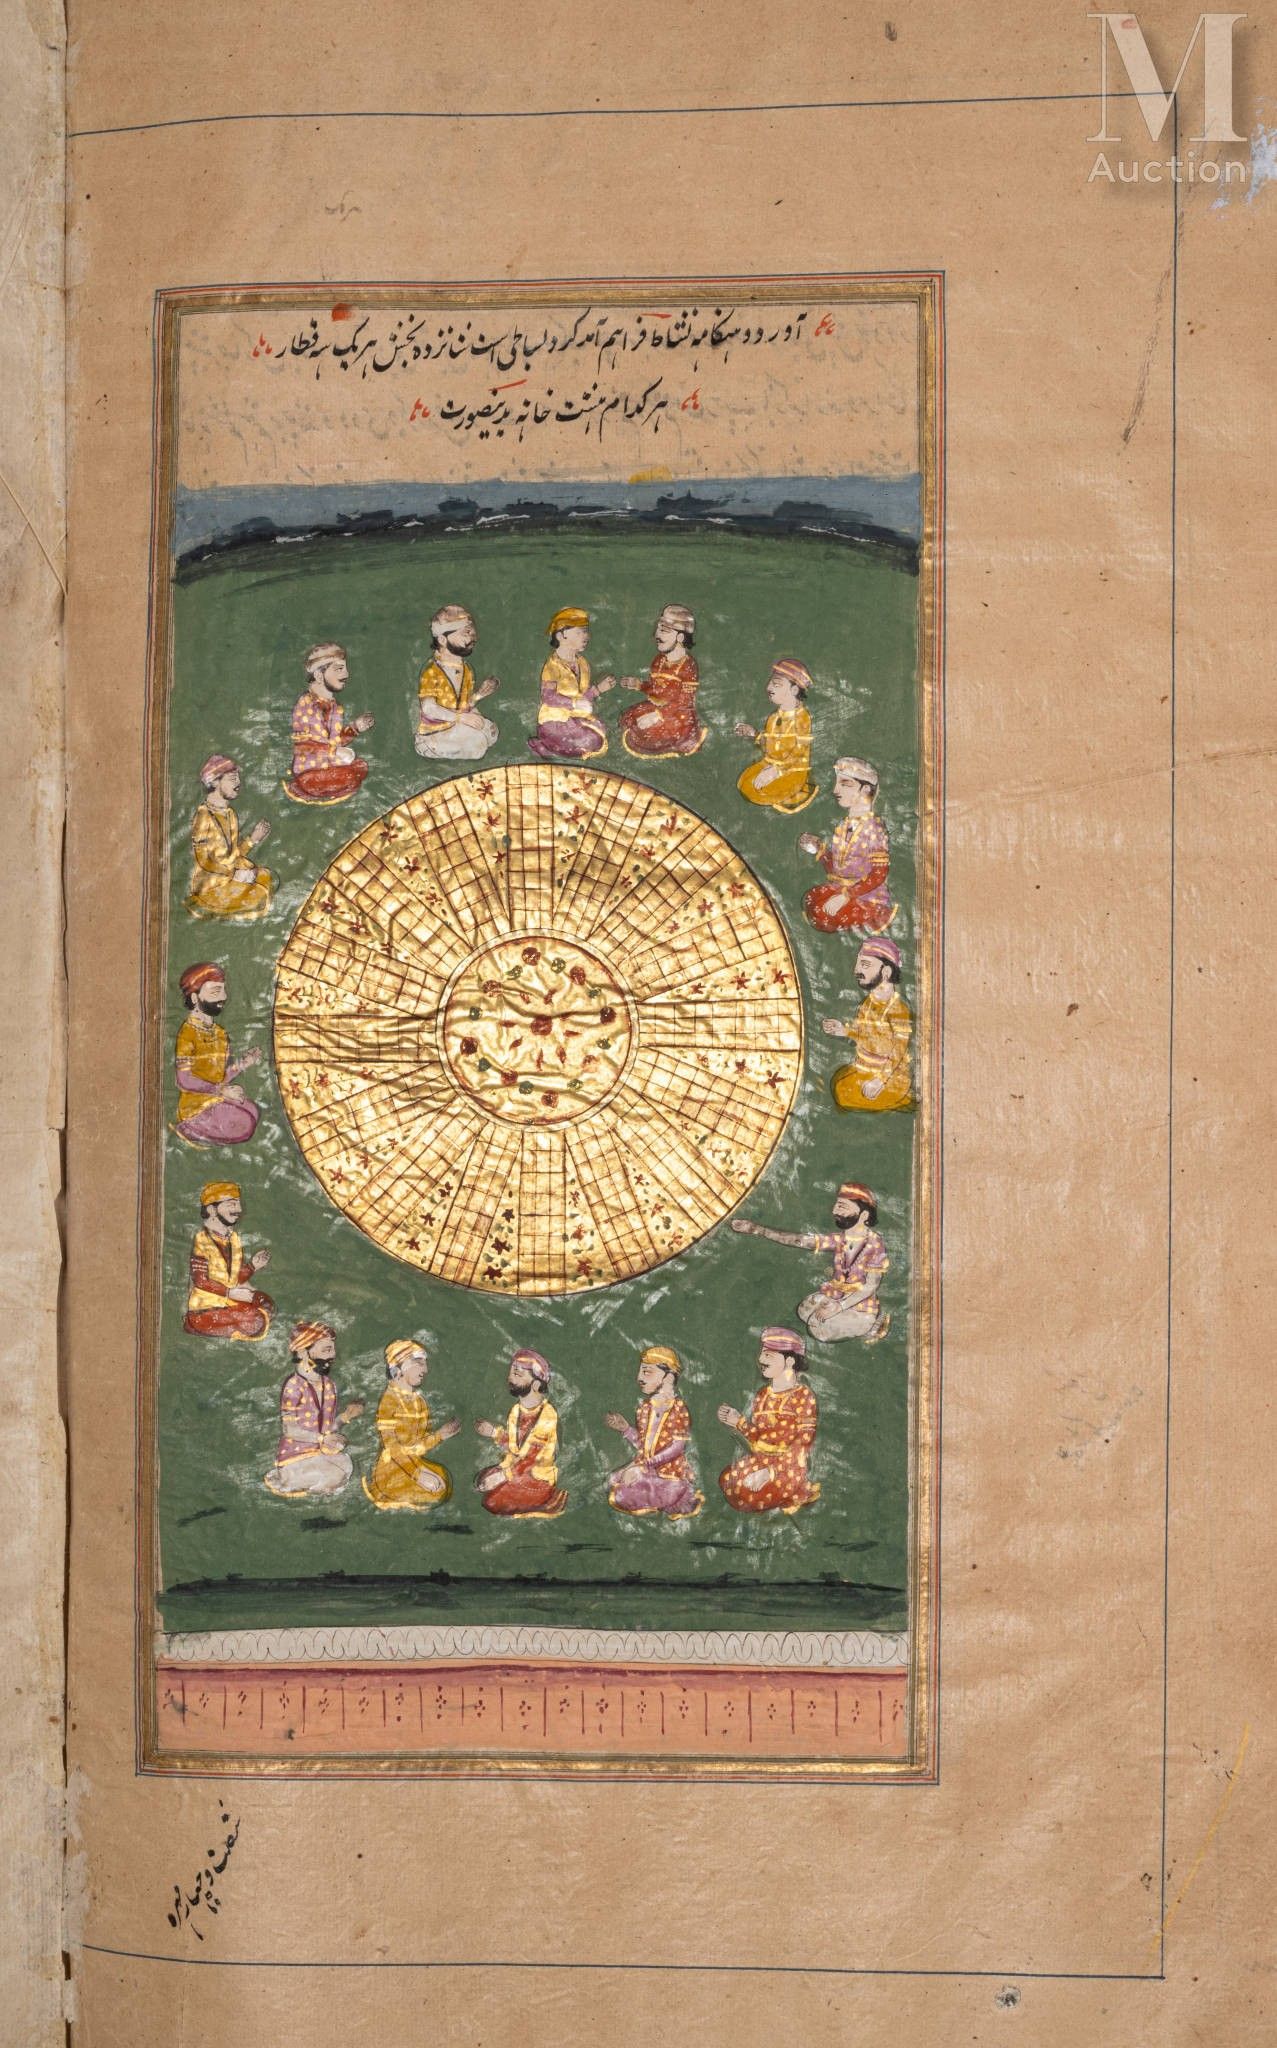 M
Auction
آورد و هنگامه نشاط فراهم آمد گرد بساطی است شانزده بخش هر یک سه قطار
هر کدام هشت خانه بدینصورت
شصت و چهار مهره